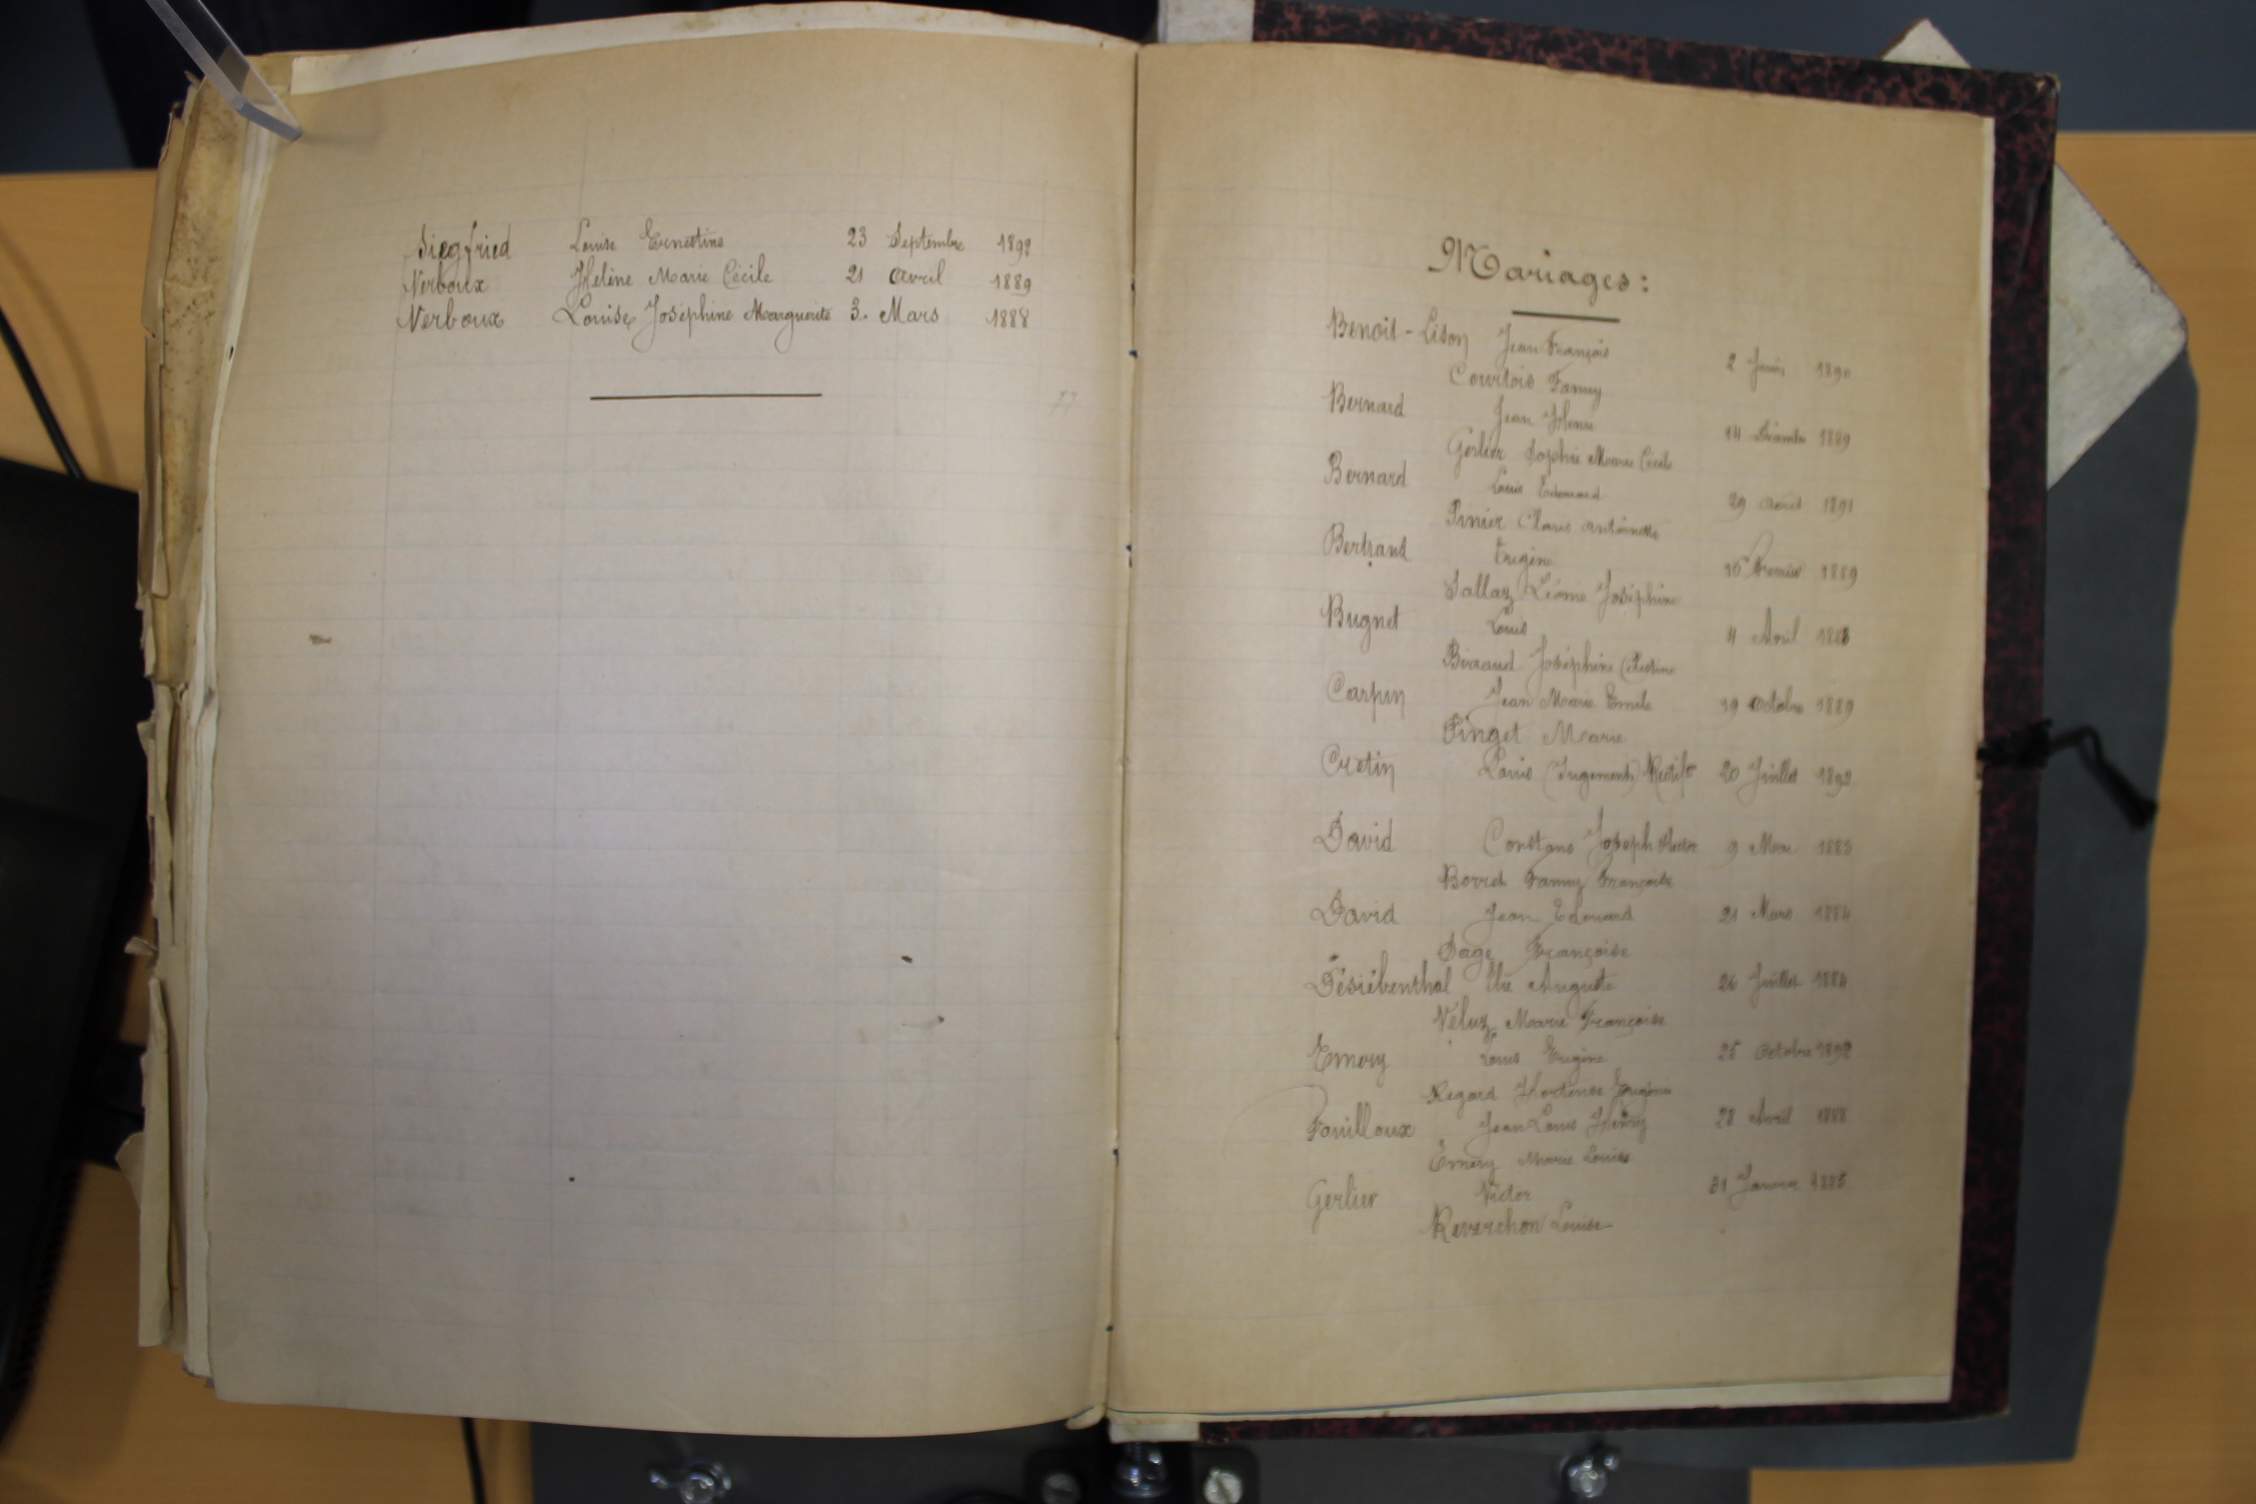 Siegfried Louise Ernestine 23 Septembre 1892
Verboux Hélène Marie Cécile 21 Avril 1889
Verboux Louise Joséphine Marguerite 3. Mars 1888
77
Mariages:
Benoit-Lison Jean François 2 Juin 1890
Courtois Fanny
Bernard Jean 14 Décembre 1889
Gerlier Sophie Marie Cécile
Bernard Louis Edouard 29 Août 1891
Pinier Antoinette
Bertrand Eugène 1889
Sallaz Joséphine
Bugnet Louis Avril 1888
Joséphine
Carpin Jean Marie Emile 19 Octobre 1889
Pinget Marie
Cretin Louis (Jugement) Rectif 20 Juillet 1892
David Constans Joseph 9
Fanny Françoise
David Jean Edouard 21 Mars 1884
Sage Françoise
Désiébenthal Auguste 26 Juillet 1884
Véluz Marie Françoise
Emery Louis Eugène 25 Octobre 1892
Regard Hortense
Fouilloux Jean Louis Henry 28 Avril 1888
Emery Marie Louise
Gerlier Victor 31 Janvier
Reverchon Louise